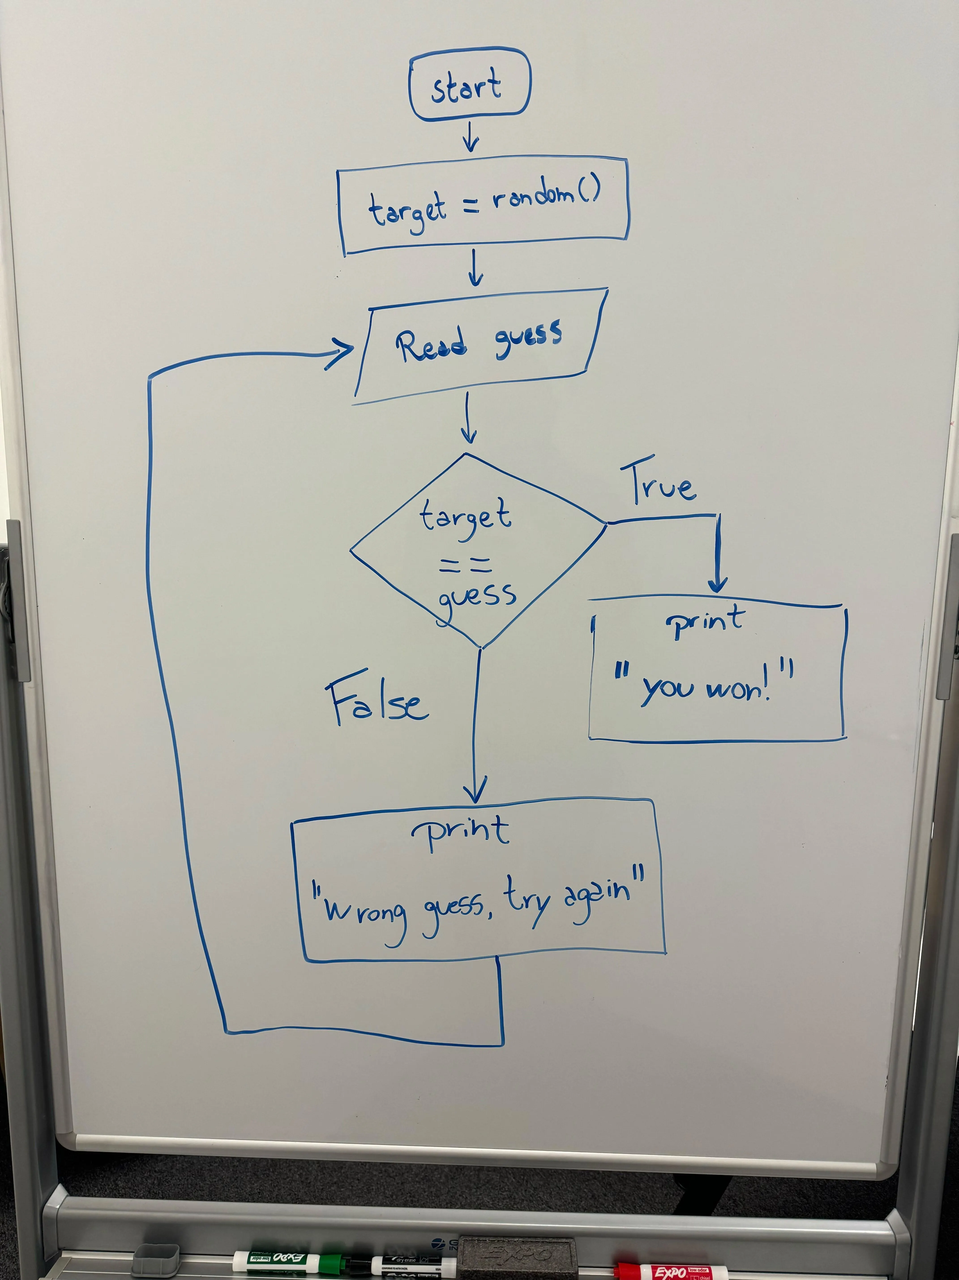 start
target = random()
Read guess
target
==
guess
True
print
"you won!"
False
print
"Wrong guess, try again"
EXPO
EXPO